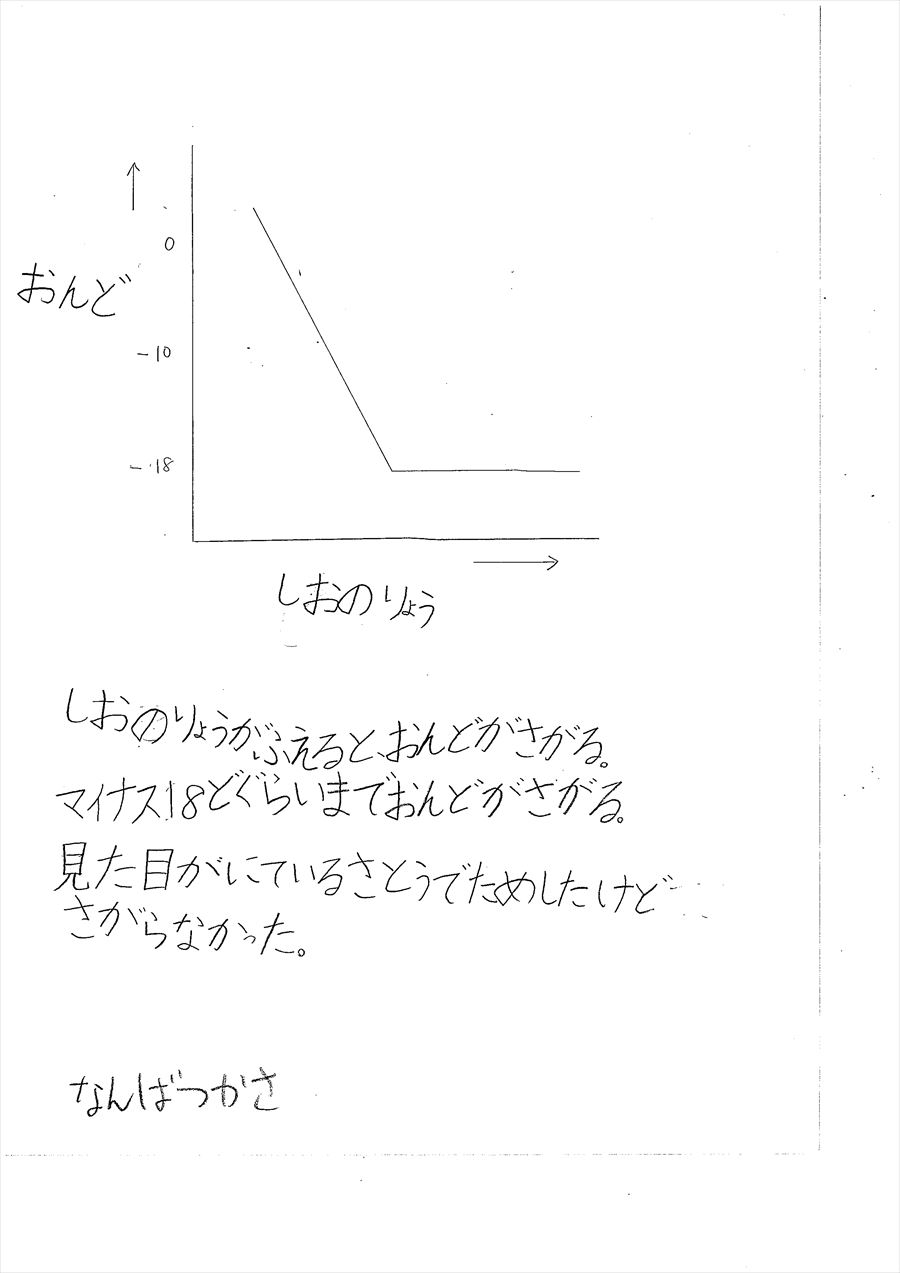 ↑
0
おんど
-10
-18
→
しおのりょう
しおのりょうがふえると、おんどがさがる。
マイナス18どぐらいまでおんどがさがる。
見た目がにているさとうでためしたけど
さがらなかった。
なんばつかさ